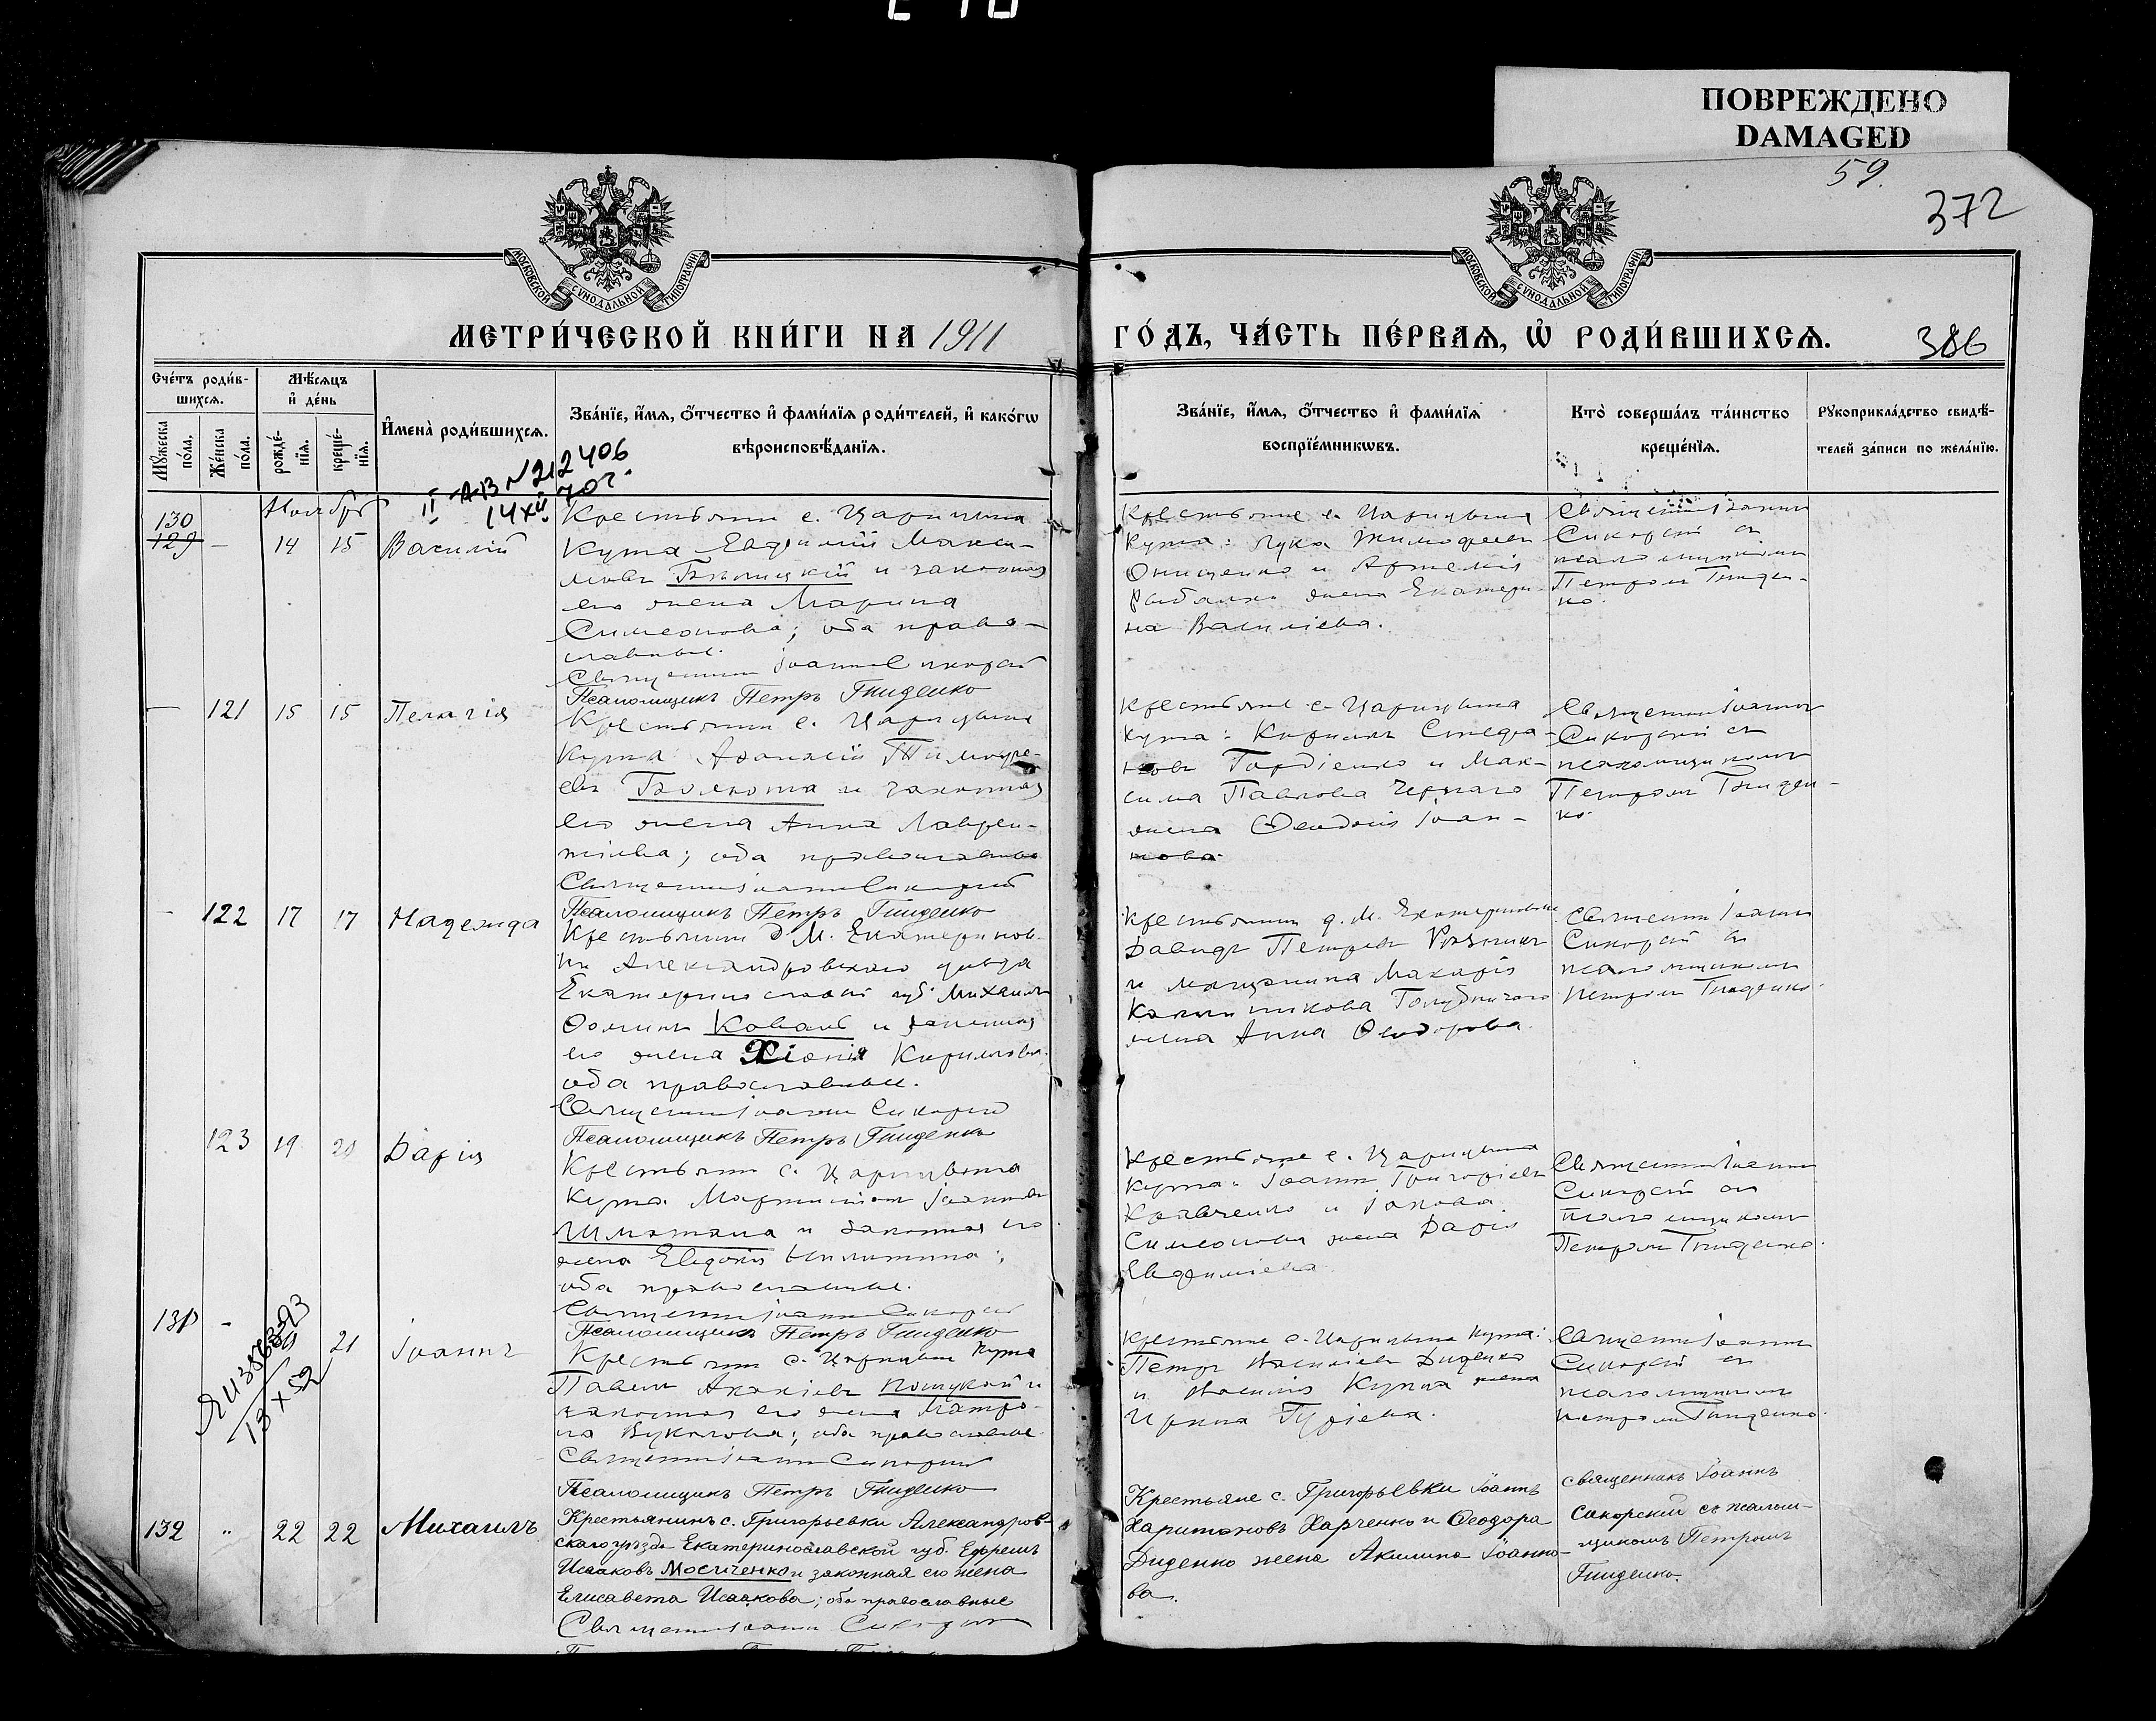 ПОВРЕЖДЕНО
DAMAGED
59.
372
МОСКОВСКОЙ СѴНОДАЛЬНОЙ ТИПОГРАФІИ
МОСКОВСКОЙ СѴНОДАЛЬНОЙ ТИПОГРАФІИ
МЕТРИ́ЧЕСКОЙ КНИ́ГИ НА 1911
ГО́ДЪ, ЧА́СТЬ ПЕ́РВАѦ, Ѡ҆ РОДИ́ВШИХСѦ.
386
Сче́тъ роди́в-
шихсѧ.
Мꙋ́жеска по́ла.
Же́нска по́ла.
Мѣ́сѧцъ
и҆ де́нь
рожде́-
нїѧ.
креще́-
нїѧ.
И҆мена̀ роди́вшихсѧ.
Зва́нїе, и҆́мѧ, ѻ҆́тчество и҆ фами́лїѧ роди́телей, и҆ како́гѡ
вѣроисповѣ́данїѧ.
Зва́нїе, и҆́мѧ, ѻ҆́тчество и҆ фами́лїѧ
воспрїе́мникѡвъ.
Кто̀ соверша́лъ та́инство
креще́нїѧ.
Рꙋкоприкла́дство свидѣ́-
телей за́писи по жела́нїю.
II АВ №212406
14 XII 70г.
Ноябрь
130
129 — 14 15 Василій
Крестьянинъ с. Царицына
Кута Евфимій Макси-
мовъ Бѣлицкій и законная
его жена Марина
Симеонова; оба право-
славные.
Священникъ Іоаннъ Сикорскій
Псаломщикъ Петръ Гниденко
Крестьяне с. Царицына
Кута: Лука Тимофеевъ
Онищенко и Артемія
Рыбалки жена Екатери-
на Василіева.
Священникъ Іоаннъ
Сикорскій съ
псаломщикомъ
Петромъ Гниден-
ко.
— 121 15 15 Пелагія
Крестьянинъ с. Царицына
Кута Афанасій Тимофе-
евъ и законная
его жена Анна Лаврен-
тіева; оба православные
Священникъ Іоаннъ Сикорскій
Псаломщикъ Петръ Гниденко
Крестьяне с. Царицына
Кута: Кириллъ Стефа-
новъ Гордіенко и Мак-
сима Павлова Чернаго
жена Ѳеодосія Іоан-
нова.
Священникъ Іоаннъ
Сикорскій съ
псаломщикомъ
Петромъ Гниден-
ко.
— 122 17 17 Надежда
Крестьянинъ д. М. Екатеринов-
ки Александровского уѣзда
Екатеринославской губ. Михаилъ
Ѳоминъ Коваль и законная
его жена Хіонія Кириллова
оба православные.
Священникъ Іоаннъ Сикорскій
Псаломщикъ Петръ Гниденко
Крестьянинъ д. М. Екатериновки
Давидъ Петровъ
и мещанина Макарія
Голубничаго
жена Анна Ѳеодорова.
Священникъ Іоаннъ
Сикорскій съ
псаломщикомъ
Петромъ Гниденко.
123 19 20 Дарія
Крестьянинъ с. Царицына
Кута Іоанновъ
и законная его
жена Евдокія
оба православные.
Священникъ Іоаннъ Сикорскій
Псаломщикъ Петръ Гниденко
Крестьяне с. Царицына
Кута: Іоаннъ Григорьевъ
Кравченко и Іакова
Симеонова жена Дарія
Евфиміева
Священникъ Іоаннъ
Сикорскій съ
псаломщикомъ
Петромъ Гниденко.
131 -
21 Іоаннъ
13 X 52
Крестьянинъ с. Царицына Кута
Павелъ Акакіевъ и
законная его жена Матро-
на Вуколова; оба православные.
Священникъ Іоаннъ Сикорскій
Псаломщикъ Петръ Гниденко
Крестьяне с. Царицына Кута:
Петръ Василіевъ Диденко
и Василія Купца жена
Ирина Гуріева.
Священникъ Іоаннъ
Сикорскій съ
псаломщикомъ
Петромъ Гниденко.
132 " 22 22 Михаилъ
Крестьянинъ с. Григорьевки Александров-
скаго уѣзда Екатеринославской губ. Ефремъ
Исааковъ Мосиченко и законная его жена
Елисавета Исаакова; оба православные
Священникъ Іоаннъ Сикорскій
Крестьяне с. Григорьевки Іоаннъ
Харитоновъ Харченко и Ѳеодора
Диденко жена Акилина Іоанно-
ва.
священникъ Іоаннъ
Сикорскій съ псалом-
щикомъ Петромъ
Гниденко.